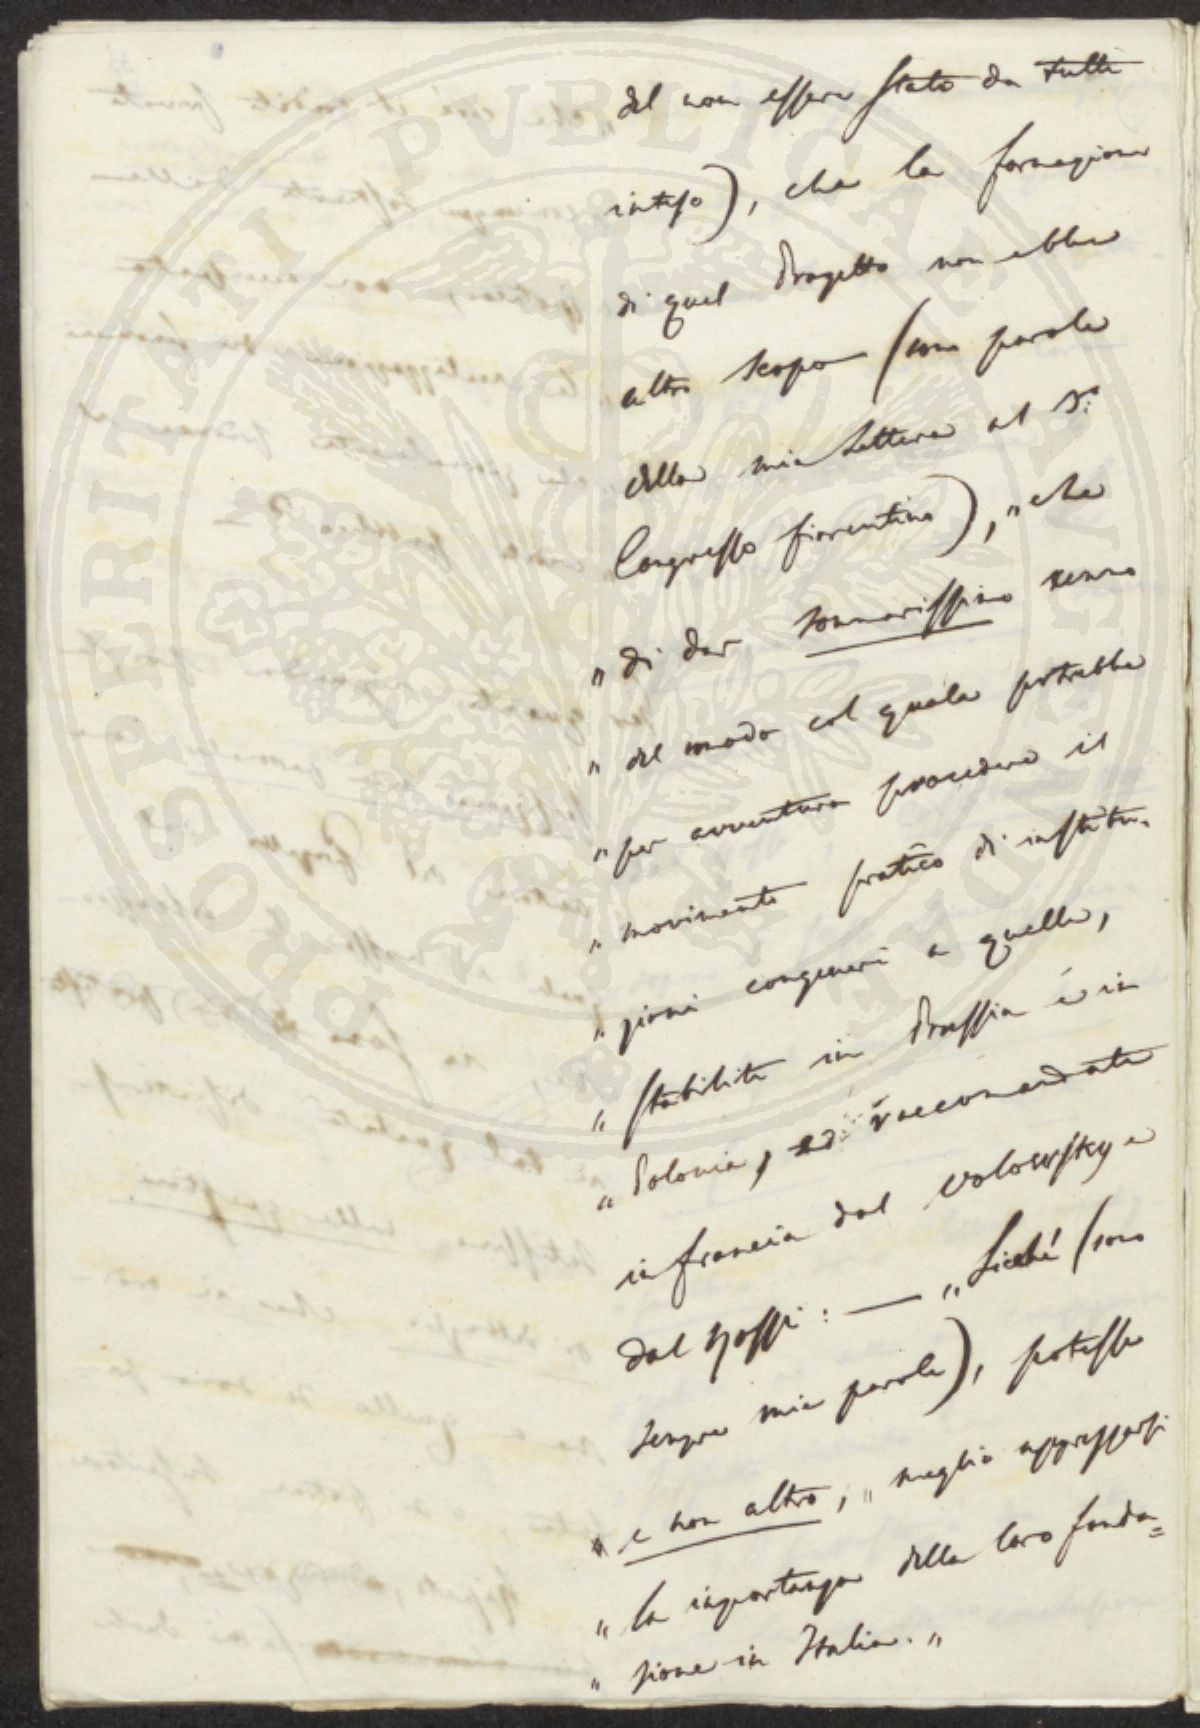 del non essere stato da tutti
inteso), che la formazione
di quel Progetto non ebbe
altro scopo (sono parole
della mia Lettera al S.r
Congresso fiorentino), „ che
„ di dar sommarissimo cenno
„ del modo col quale potrebbe
„ per avventura procedere il
„ movimento pratico di institu-
„ zioni congeneri a quelle,
„ stabilite in Prussia e in
„ Polonia, ed raccomandate
in francia dal Volowsky e
dal Rossi: — „ Sicché (sono
sempre mie parole), potesse
„ e non altro, „ meglio apprezzarsi
„ la importanza della loro fonda=
„ zione in Italia. „
PROSPERITATI PUBLICAE AUGENDAE